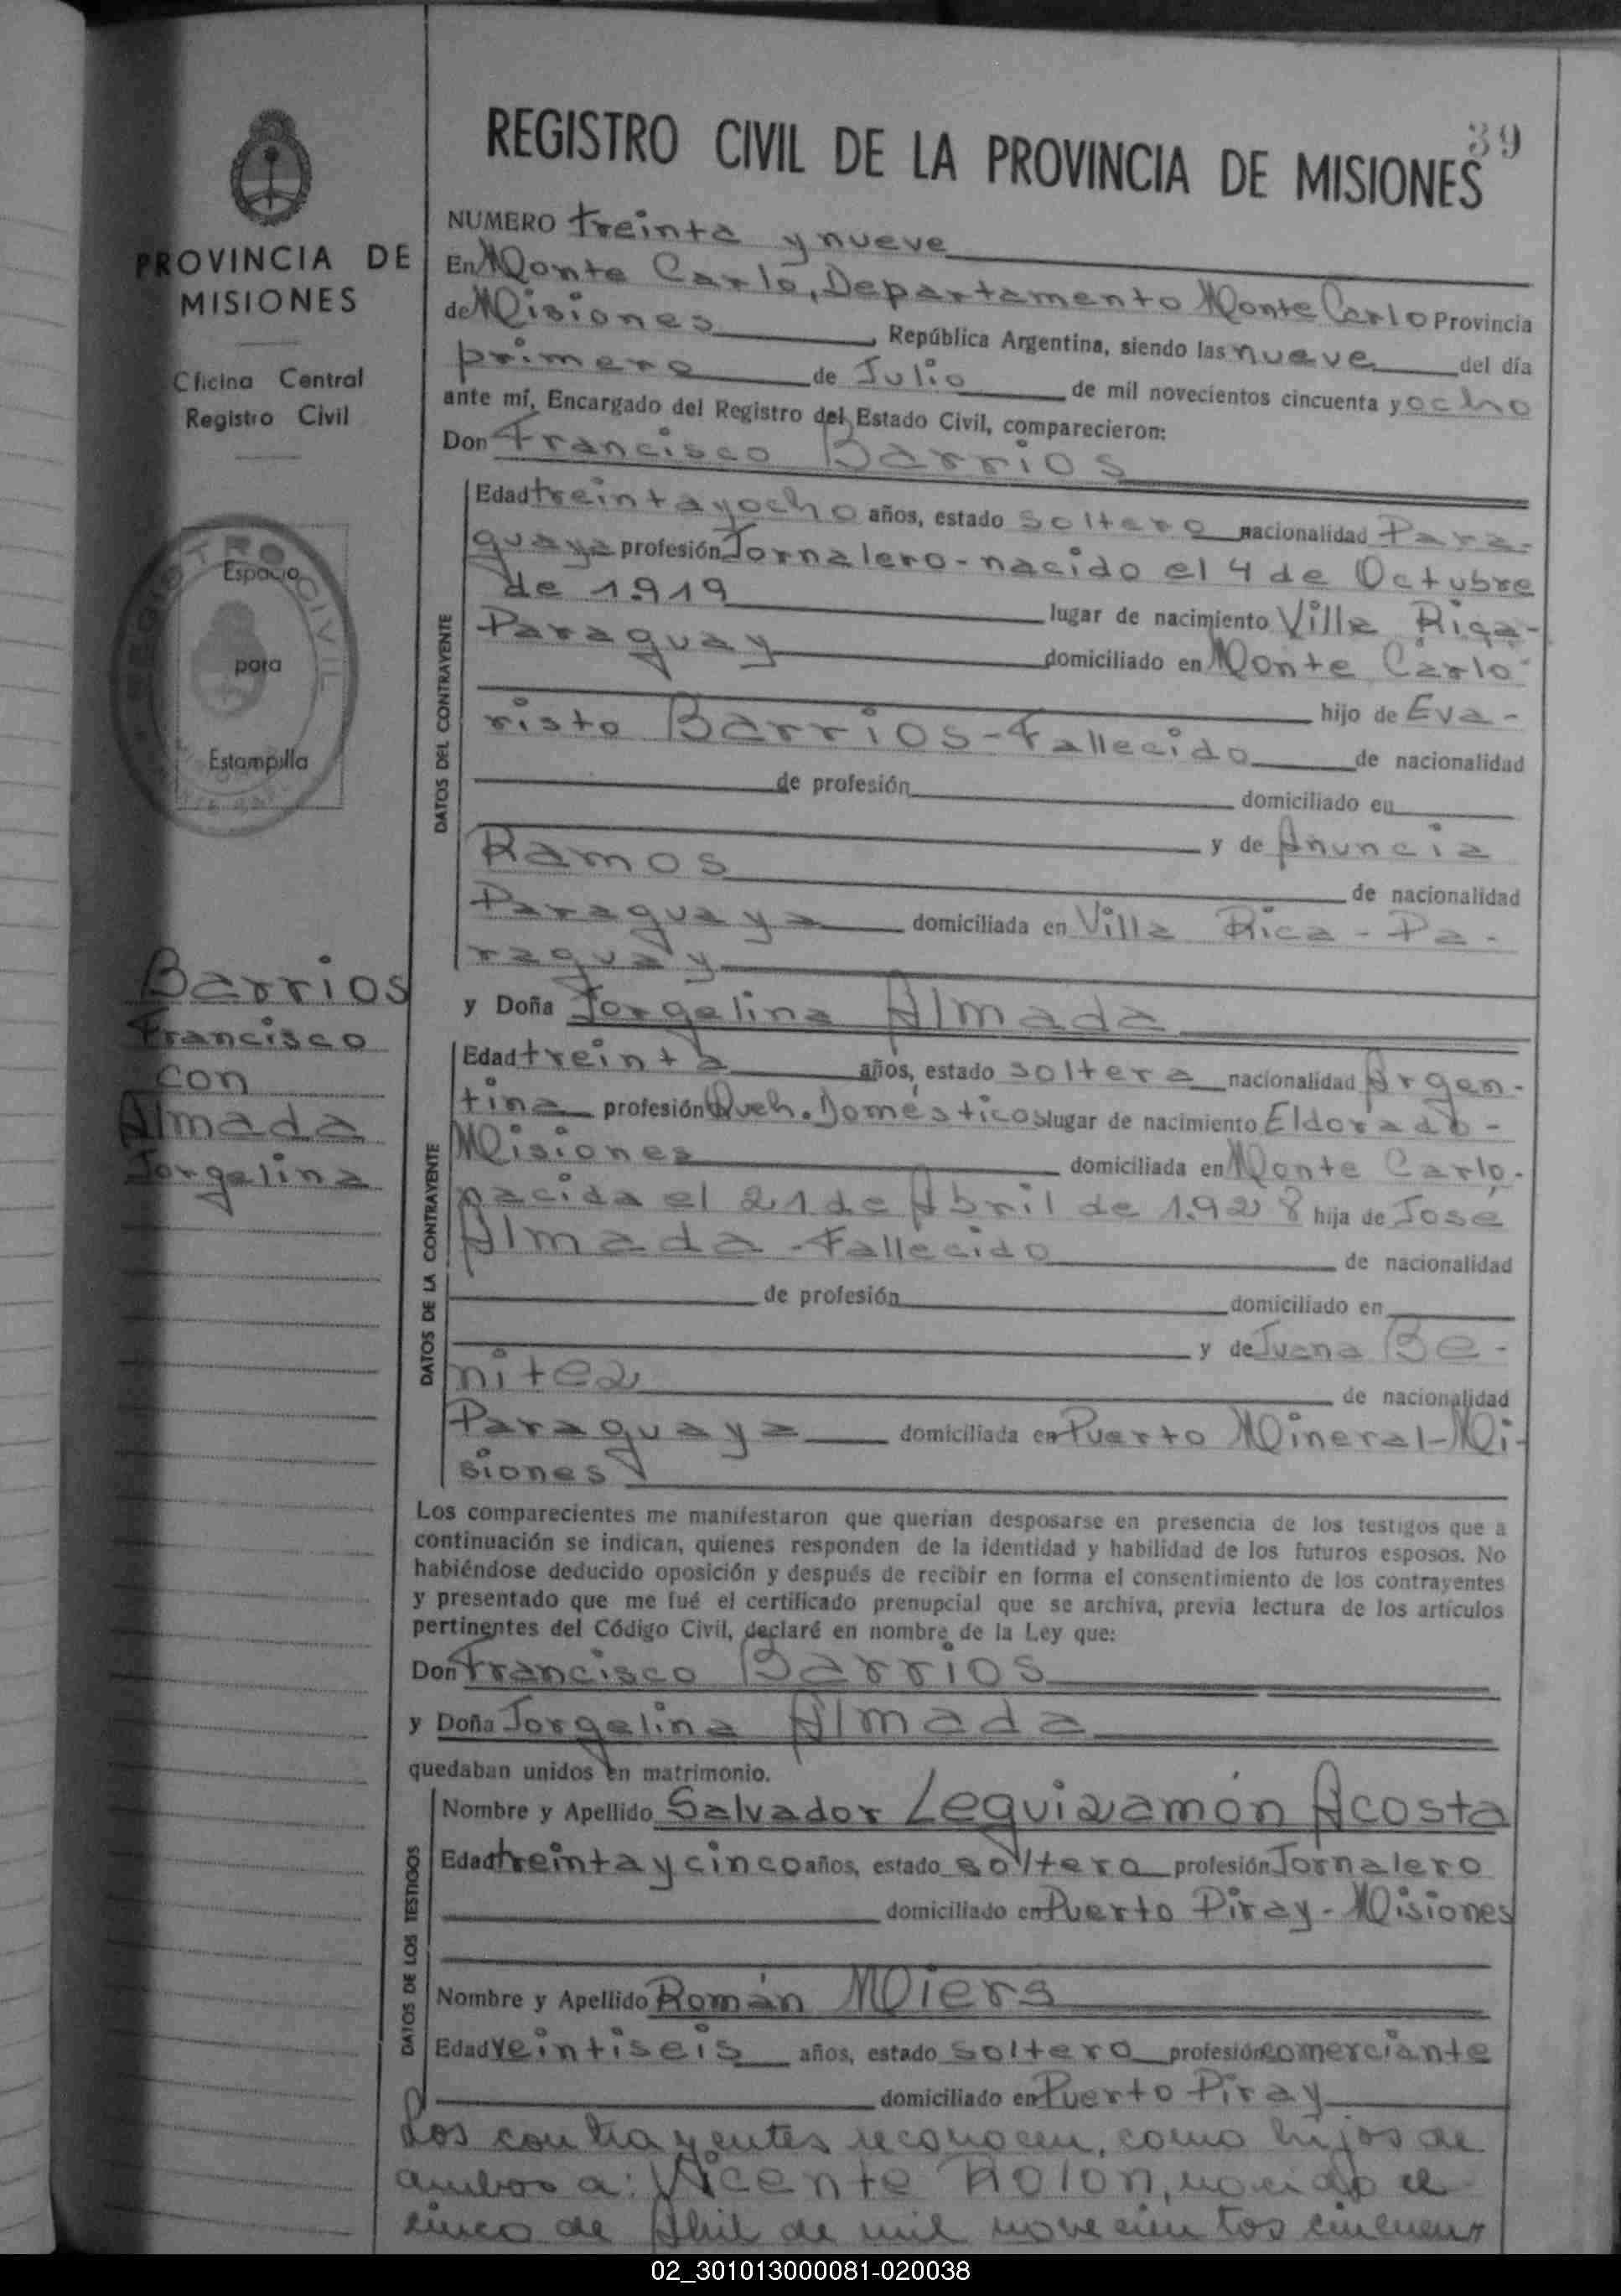 39
REGISTRO CIVIL DE LA PROVINCIA DE MISIONES
PROVINCIA DE
MISIONES
Oficina Central
Registro Civil
REGISTRO CIVIL
Espacio
para
Estampilla
Barrios
Francisco
con
Almada
Jorgelina
NUMERO treinta y nueve
En Monte Carlo, Departamento Monte Carlo Provincia
de Misiones, República Argentina, siendo las nueve del día
primero de Julio de mil novecientos cincuenta y ocho
ante mí, Encargado del Registro del Estado Civil, comparecieron:
Don Francisco Barrios
DATOS DEL CONTRAYENTE
Edad treinta y ocho años, estado soltero nacionalidad Para-
guaya profesión Jornalero-nacido el 4 de Octubre
de 1.919 lugar de nacimiento Villa Rica-
Paraguay domiciliado en Monte Carlo
hijo de Eva-
risto Barrios-Fallecido de nacionalidad
de profesión domiciliado en
y de Anuncia
Ramos de nacionalidad
Paraguaya domiciliada en Villa Rica-Pa-
raguay
y Doña Jorgelina Almada
DATOS DE LA CONTRAYENTE
Edad treinta años, estado soltera nacionalidad Argen-
tina profesión Queh. Domésticos lugar de nacimiento Eldorado-
Misiones domiciliada en Monte Carlo,-
nacida el 21 de Abril de 1.928 hija de José
Almada-Fallecido de nacionalidad
de profesión domiciliado en
y de Juana Be-
nitez de nacionalidad
Paraguaya domiciliada en Puerto Mineral-Mi-
siones
Los comparecientes me manifestaron que querían desposarse en presencia de los testigos que a
continuación se indican, quienes responden de la identidad y habilidad de los futuros esposos. No
habiéndose deducido oposición y después de recibir en forma el consentimiento de los contrayentes
y presentado que me fué el certificado prenupcial que se archiva, previa lectura de los artículos
pertinentes del Código Civil, declaré en nombre de la Ley que:
Don Francisco Barrios
y Doña Jorgelina Almada
quedaban unidos en matrimonio.
DATOS DE LOS TESTIGOS
Nombre y Apellido Salvador Leguizamón Acosta
Edad treinta y cinco años, estado soltero profesión Jornalero
domiciliado en Puerto Piray-Misiones
Nombre y Apellido Román Miers
Edad veintiseis años, estado soltero profesión comerciante
domiciliado en Puerto Piray
Los contrayentes reconocen, como hijos de
ambos a: Vicente Rolon, nacido el
cinco de Abril de mil novecientos cincuen
02_301013000081-020038